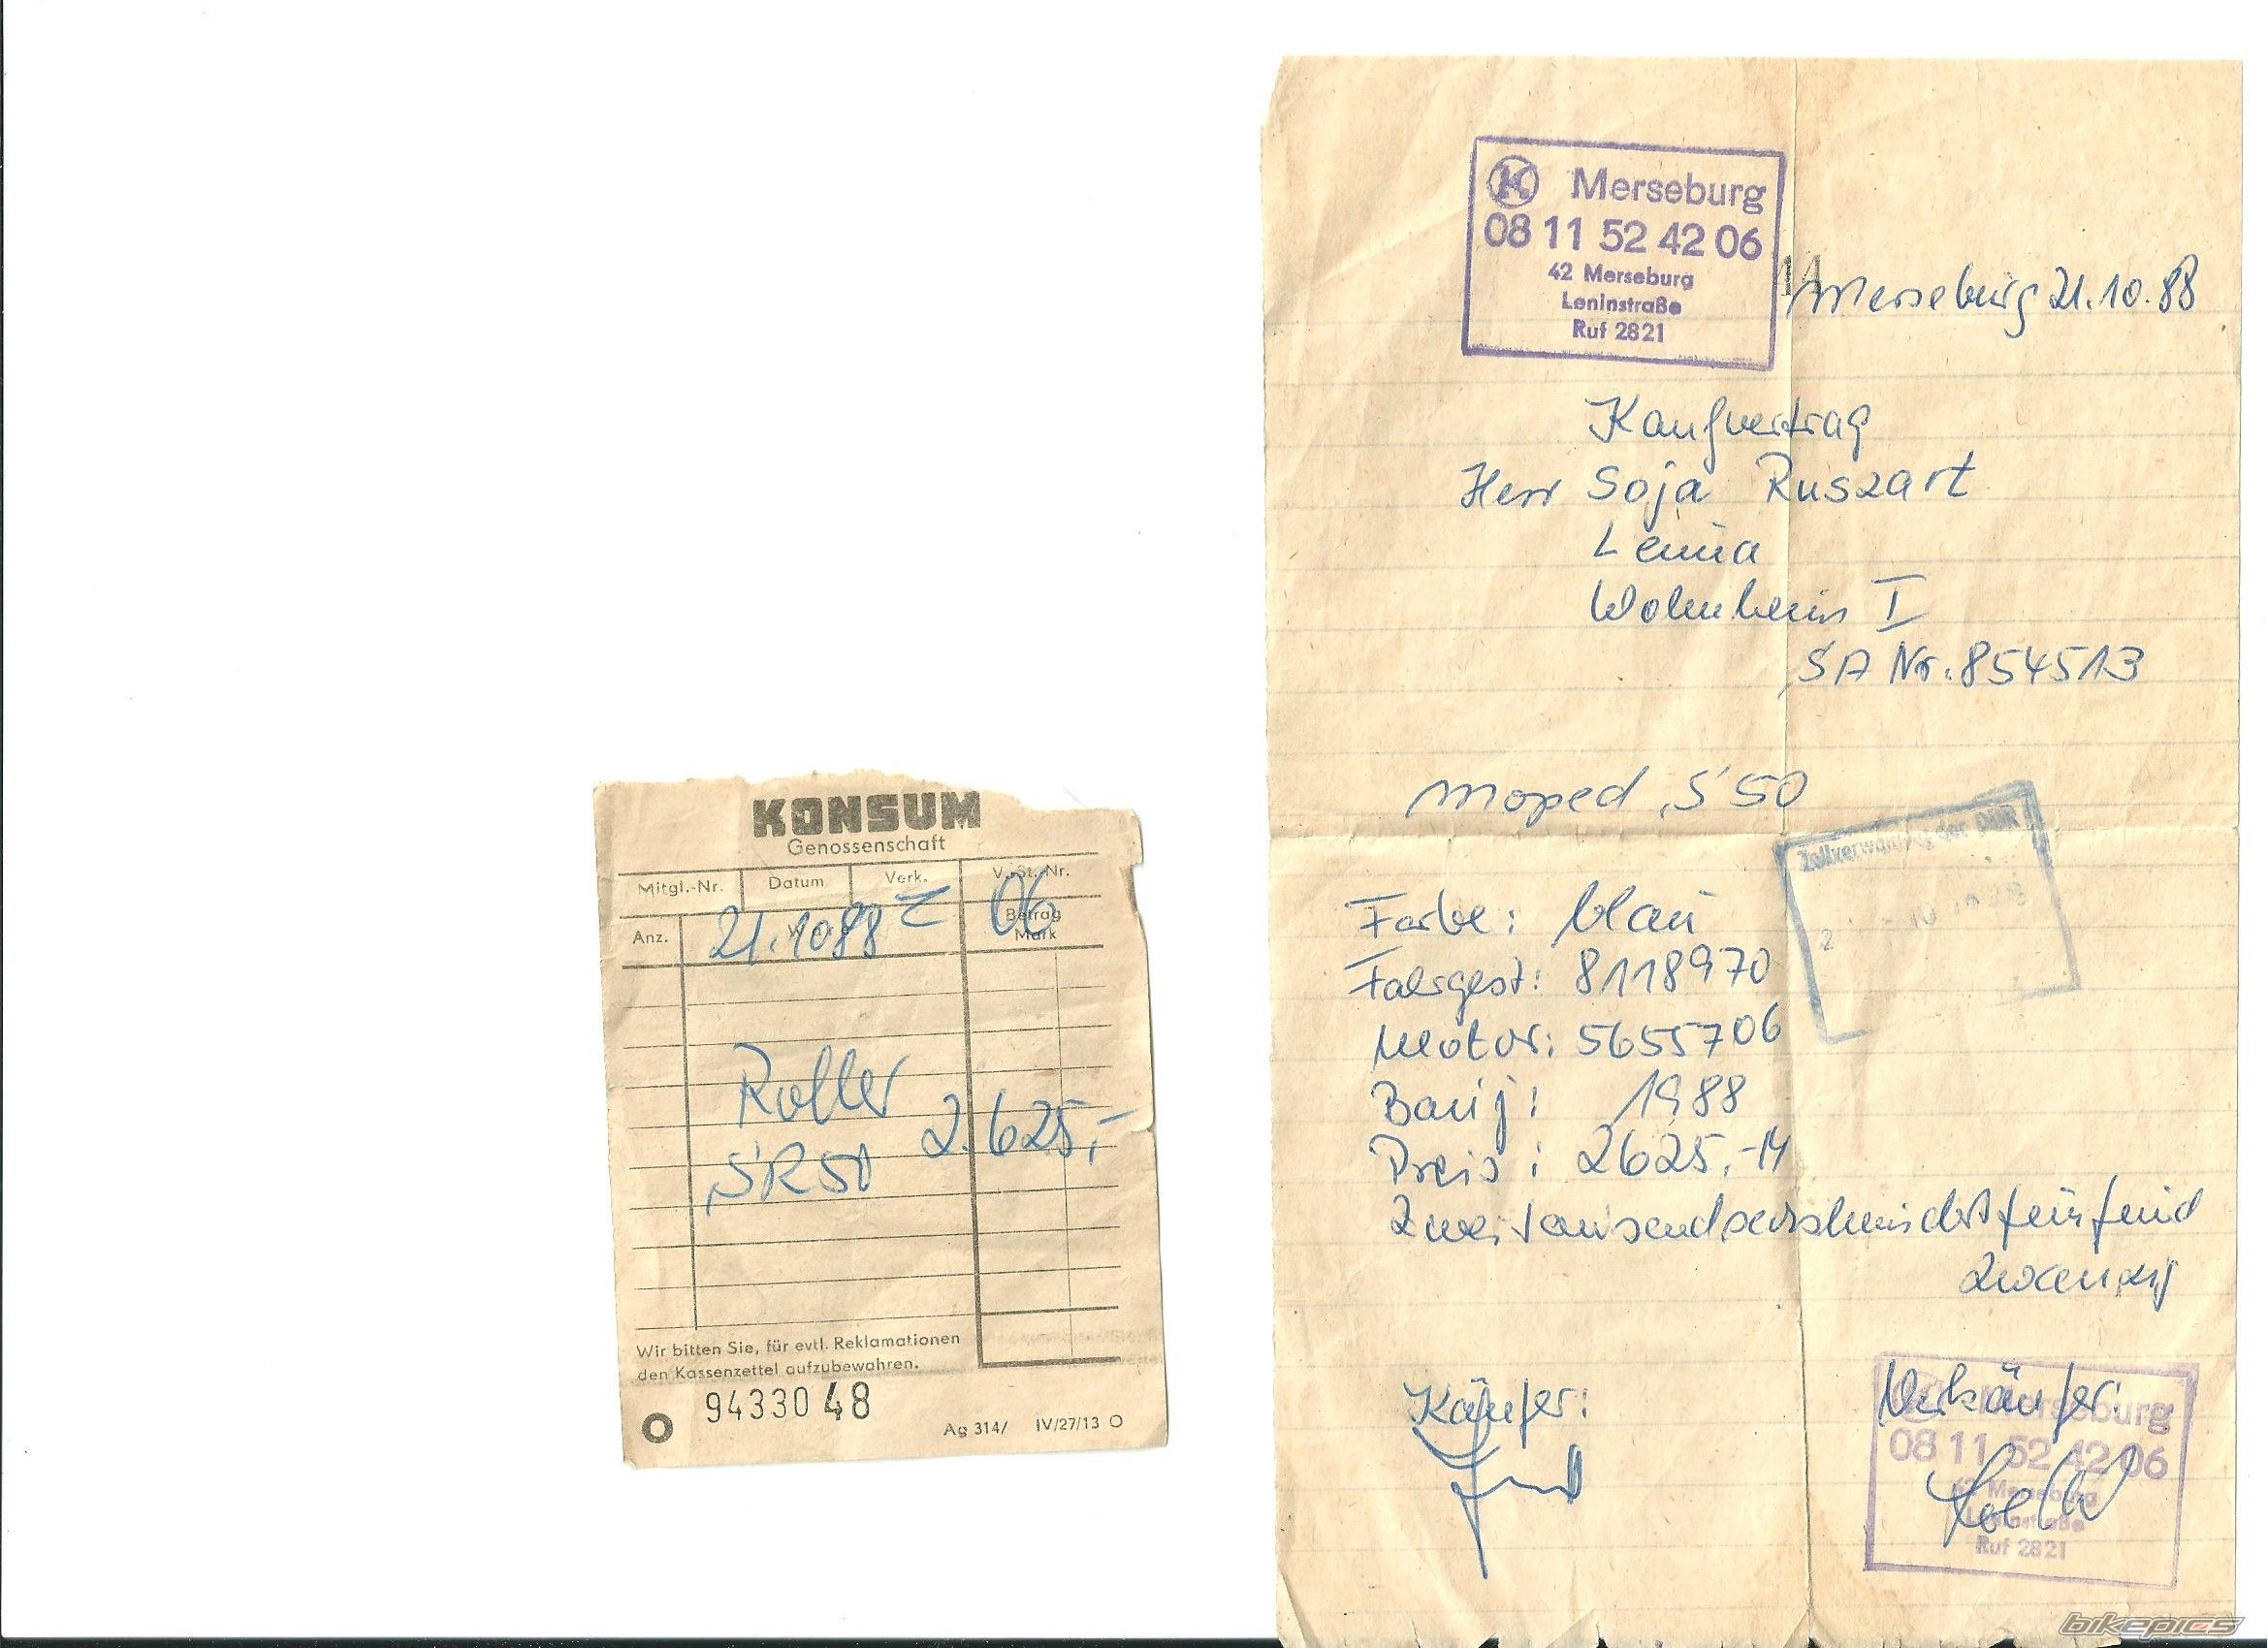 KONSUM
Genossenschaft
Mitgl.-Nr. Datum Verk. V.-St.-Nr.
21.10 88 06
Anz. Betrag
Mark
Roller
SR50 2.625,-
Wir bitten Sie, für evtl. Reklamationen
den Kassenzettel aufzubewahren.
9433048
Ag 314/ IV/27/13
K Merseburg
08 11 52 42 06
42 Merseburg
Leninstraße
Ruf 2821
Merseburg 21.10.88
Kaufvertrag
Herr Soja Ruszart
Leuna
Wohnheim I
SA Nr. 854513
Moped S 50
Zollverwaltung der DDR
Farbe: blau
Fahrgest: 8118970
Motor: 5655706
Bauj: 1988
Preis: 2625,-M
Zweitausendsechshundertfünfund
zwanzig
Käufer:
Verkäufer:
Merseburg
08 11 52 42 06
42 Merseburg
Leninstraße
Ruf 2821
bikepics